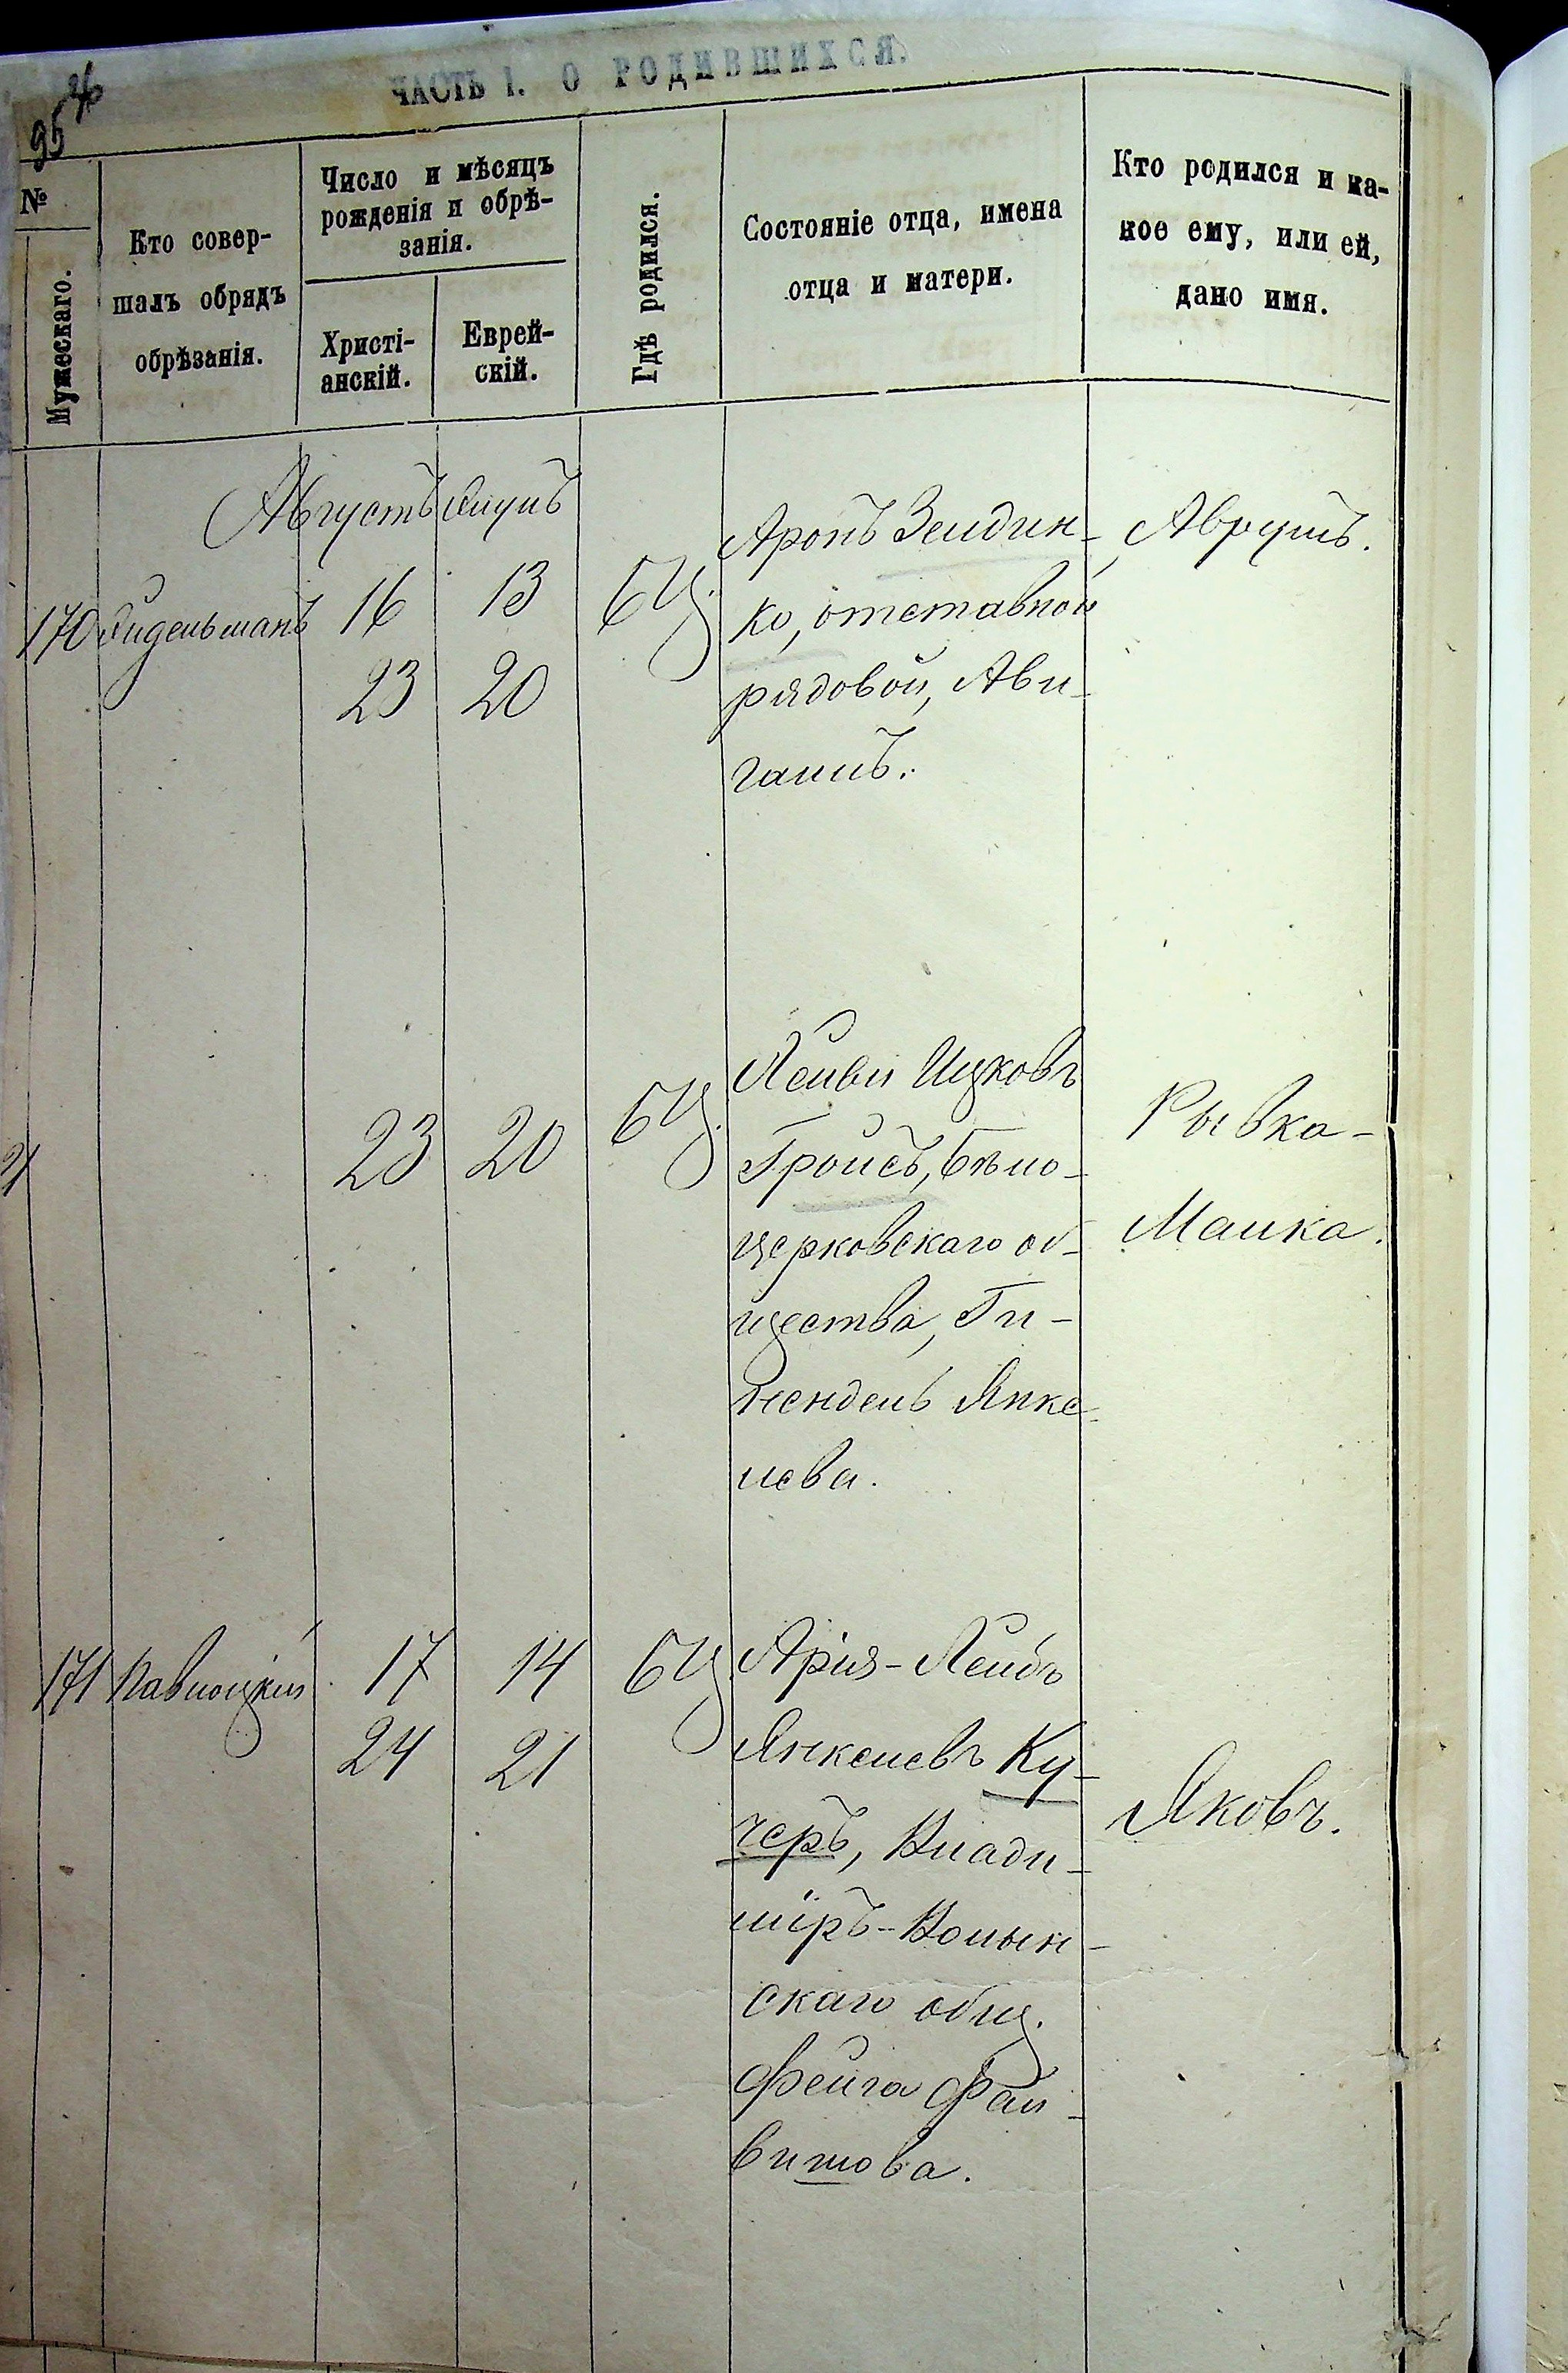 ЧАСТЬ I. О РОДИВШИХСЯ.
95
№
Мужескаго.
Кто совер-
шалъ обрядъ
обрѣзанія.
Число и мѣсяцъ
рожденія и обрѣ-
занія.
Христі-
анскій.
Еврей-
скій.
Гдѣ родился.
Состояніе отца, имена
отца и матери.
Кто родился и ка-
кое ему, или ей,
дано имя.
Августъ Элулъ
170
16 13
23 20
БЦ.
Аронъ Зейдин-
ко, отставной
рядовой, Ави-
гаиль.
Аврумъ.
23 20
БЦ.
Лейви Ицковъ
Гройсъ, Бѣло-
церковскаго об-
щества, Ги-
нендель Янке-
лева.
Рывка-
Малка.
171 Павлоцкій
17 14
24 21
БЦ
Арія-Лейбъ
Янкелевъ Ку-
черъ, Влади-
міръ-Волын-
скаго общ.
Фейга Фай-
вишова.
Яковъ.